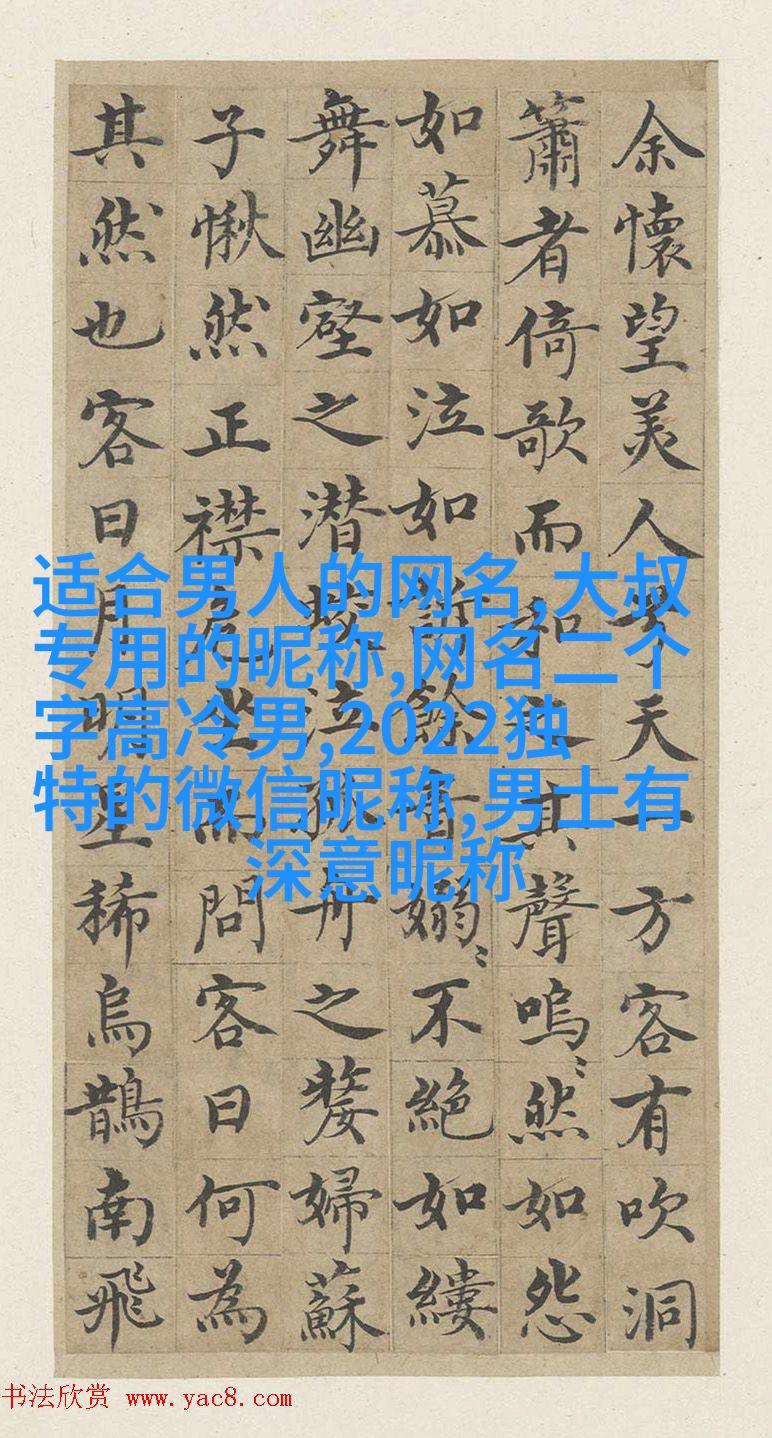 余懷望美人兮天一方客有吹洞
簫者倚歌而和之其聲嗚〻然如怨
如慕如泣如訴餘音嫋〻不絕如縷
舞幽壑之潜蛟泣孤舟之嫠婦蘇
子愀然正襟危坐而問客曰何為
其然也客曰月明星稀烏鵲南飛
适合男人的网名,大叔
专用的昵称,网名二个
字高冷男,2022独
特的微信昵称,男士有
深意昵称
书法欣赏 www.yac8.com